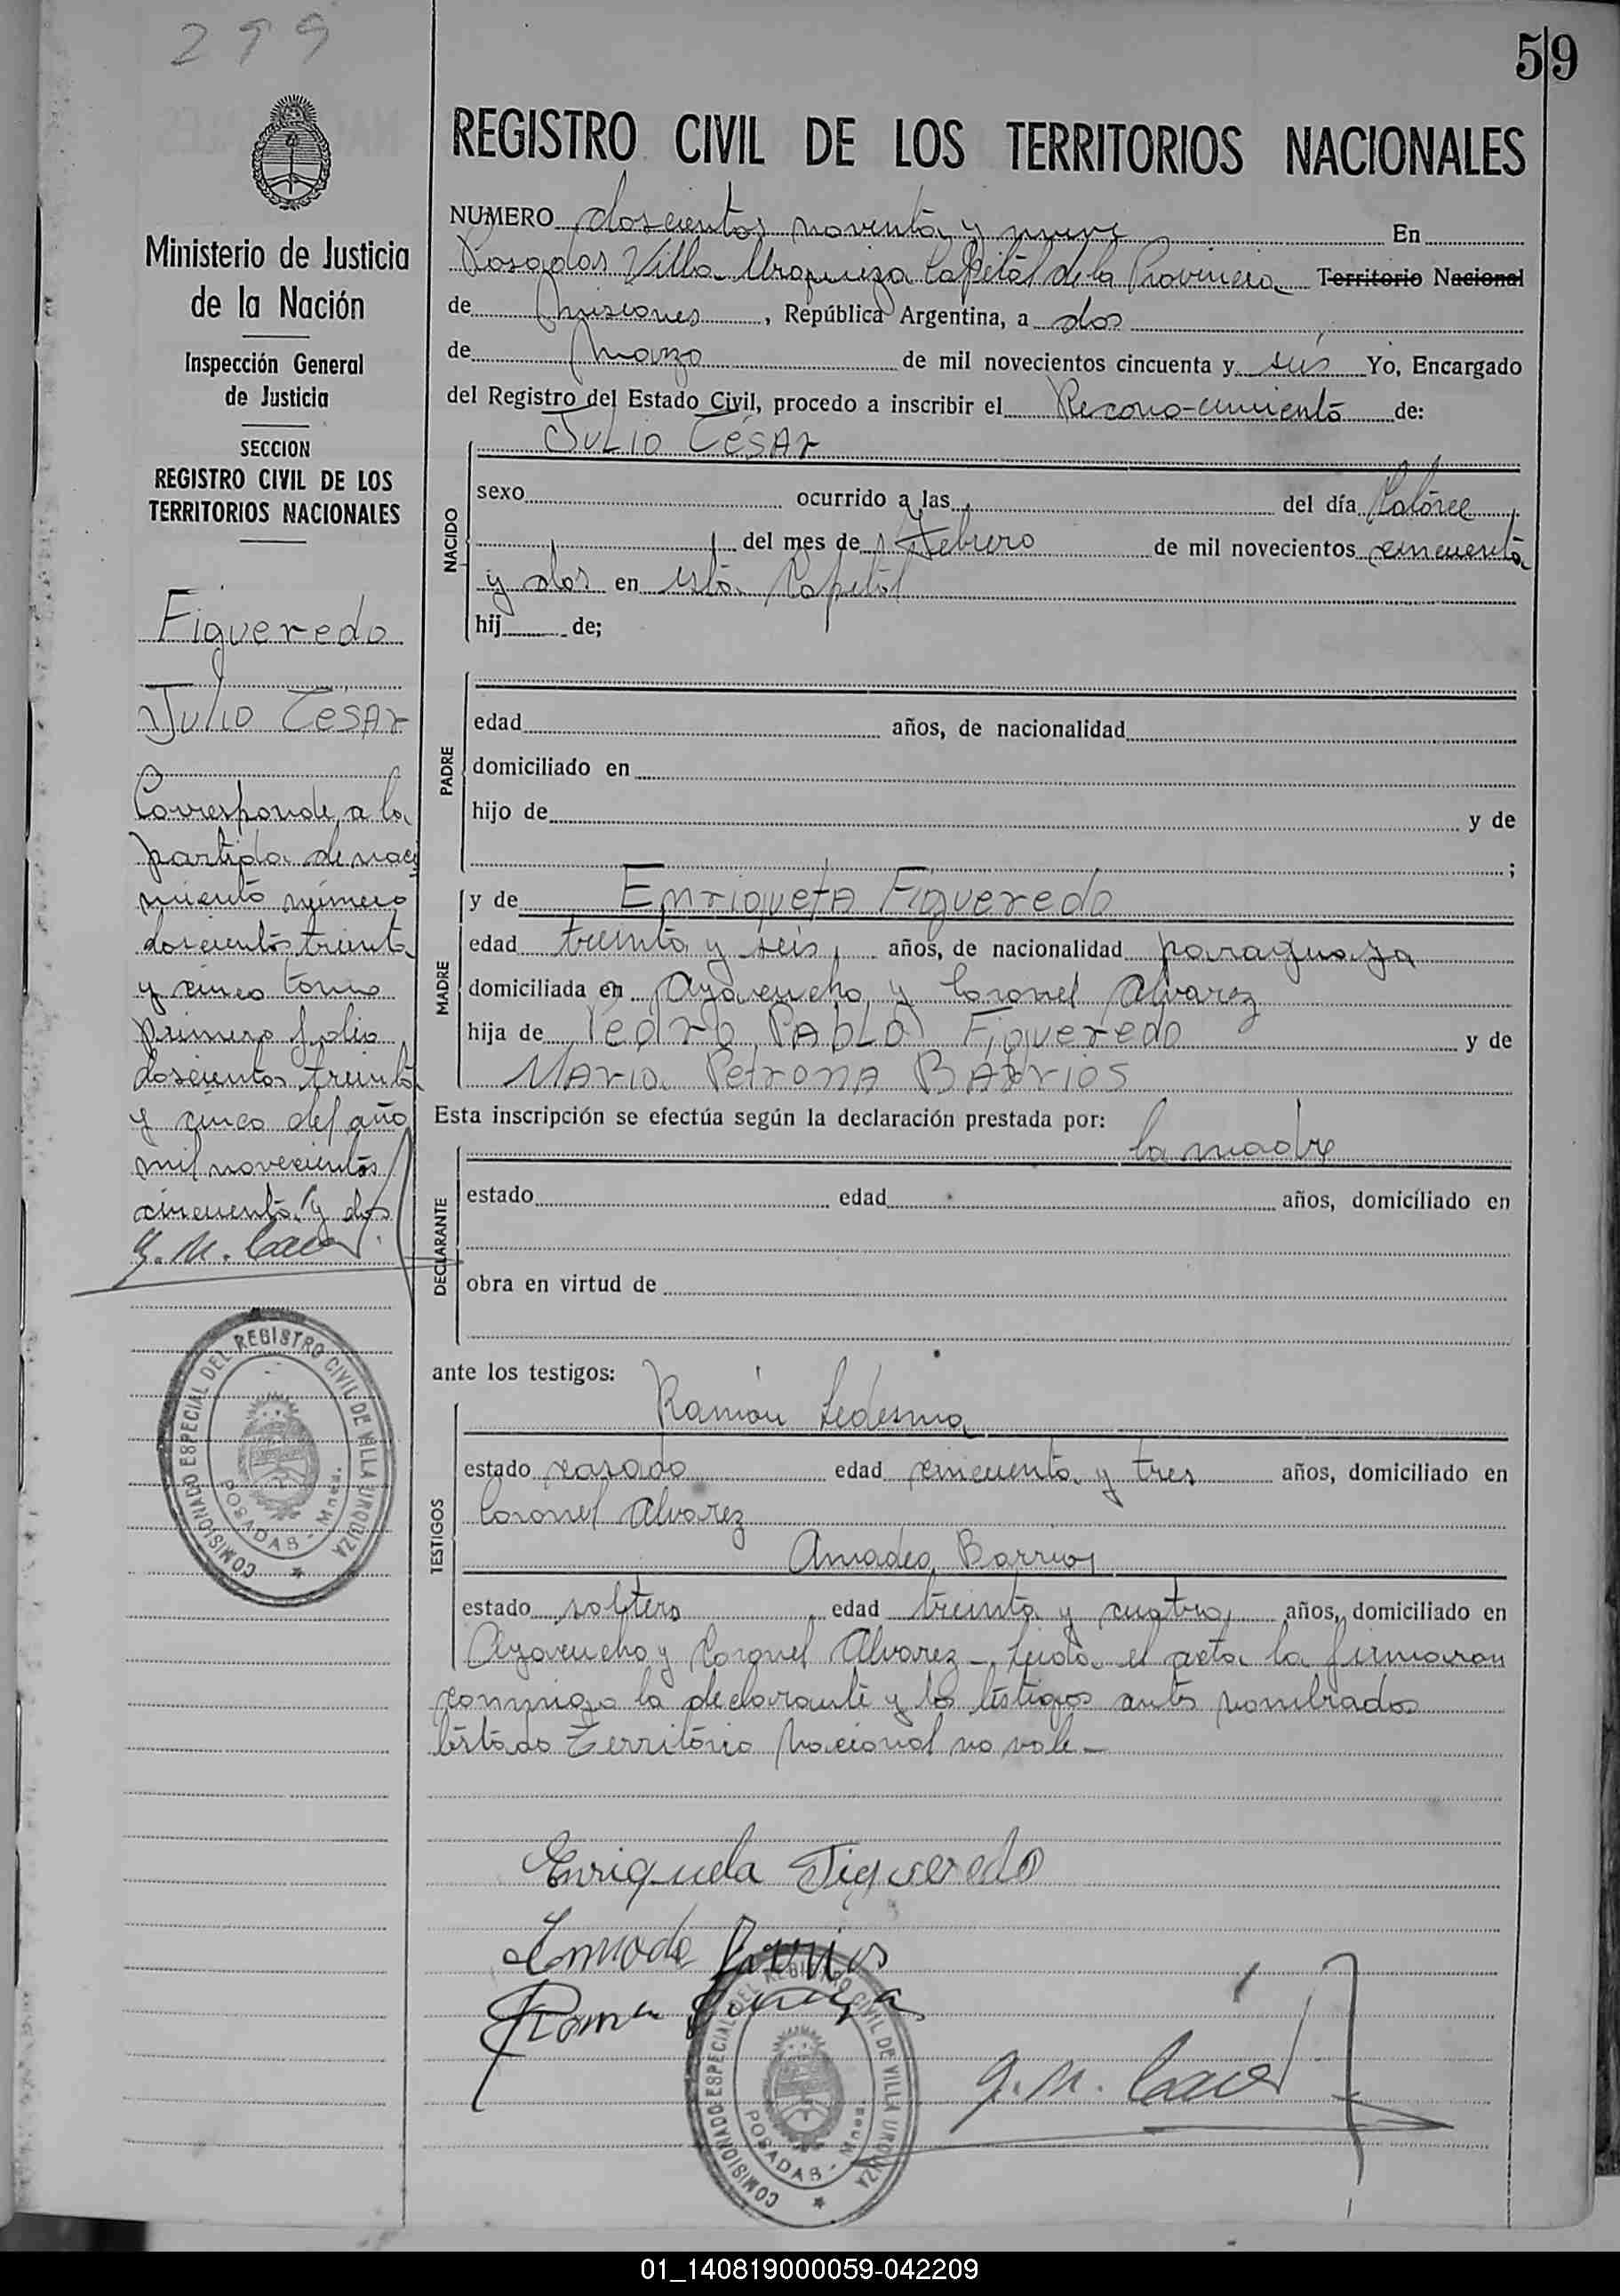 299
59
REGISTRO CIVIL DE LOS TERRITORIOS NACIONALES
Ministerio de Justicia
de la Nación
Inspección General
de Justicia
SECCION
REGISTRO CIVIL DE LOS
TERRITORIOS NACIONALES
Figueredo
Julio César
Corresponde a la
partida de naci
miento número
doscientos treinta
y cinco tomo
primero folio
doscientos treinta
y cinco del año
mil novecientos
cincuenta y dos
COMISIONADO ESPECIAL DEL REGISTRO CIVIL DE VILLA URQUIZA
POSADAS - Mnes.
NUMERO doscientos noventa y nueve En
Posadas Villa Urquiza Capital de la Provincia Territorio Nacional
de Misiones, República Argentina, a dos
de Marzo de mil novecientos cincuenta y seis Yo, Encargado
del Registro del Estado Civil, procedo a inscribir el Recono-cimiento de:
Julio César
NACIDO
sexo ocurrido a las del día Catorce
del mes de Febrero de mil novecientos cincuenta
y dos en esta Capital
hij de;
PADRE
edad años, de nacionalidad
domiciliado en
hijo de y de
;
MADRE
y de Enriqueta Figueredo
edad treinta y seis, años, de nacionalidad paraguaya
domiciliada en Ayacucho y Coronel Alvarez
hija de Pedro Pablo Figueredo y de
Maria Petrona Barrios
Esta inscripción se efectúa según la declaración prestada por:
la madre
DECLARANTE
estado edad años, domiciliado en
obra en virtud de
ante los testigos:
TESTIGOS
Ramón Ledesma
estado casado edad cincuenta y tres años, domiciliado en
Coronel Alvarez
Amadeo Barrios
estado soltero edad treinta y cuatro, años, domiciliado en
Ayacucho y Coronel Alvarez - Leida el acta la firmaron
conmigo la declarante y los testigos antes nombrados
Testado Territorio Nacional no vale -
Enriqueta Figueredo
COMISIONADO ESPECIAL DEL REGISTRO CIVIL DE VILLA URQUIZA
POSADAS - Mnes.
01_140819000059-042209